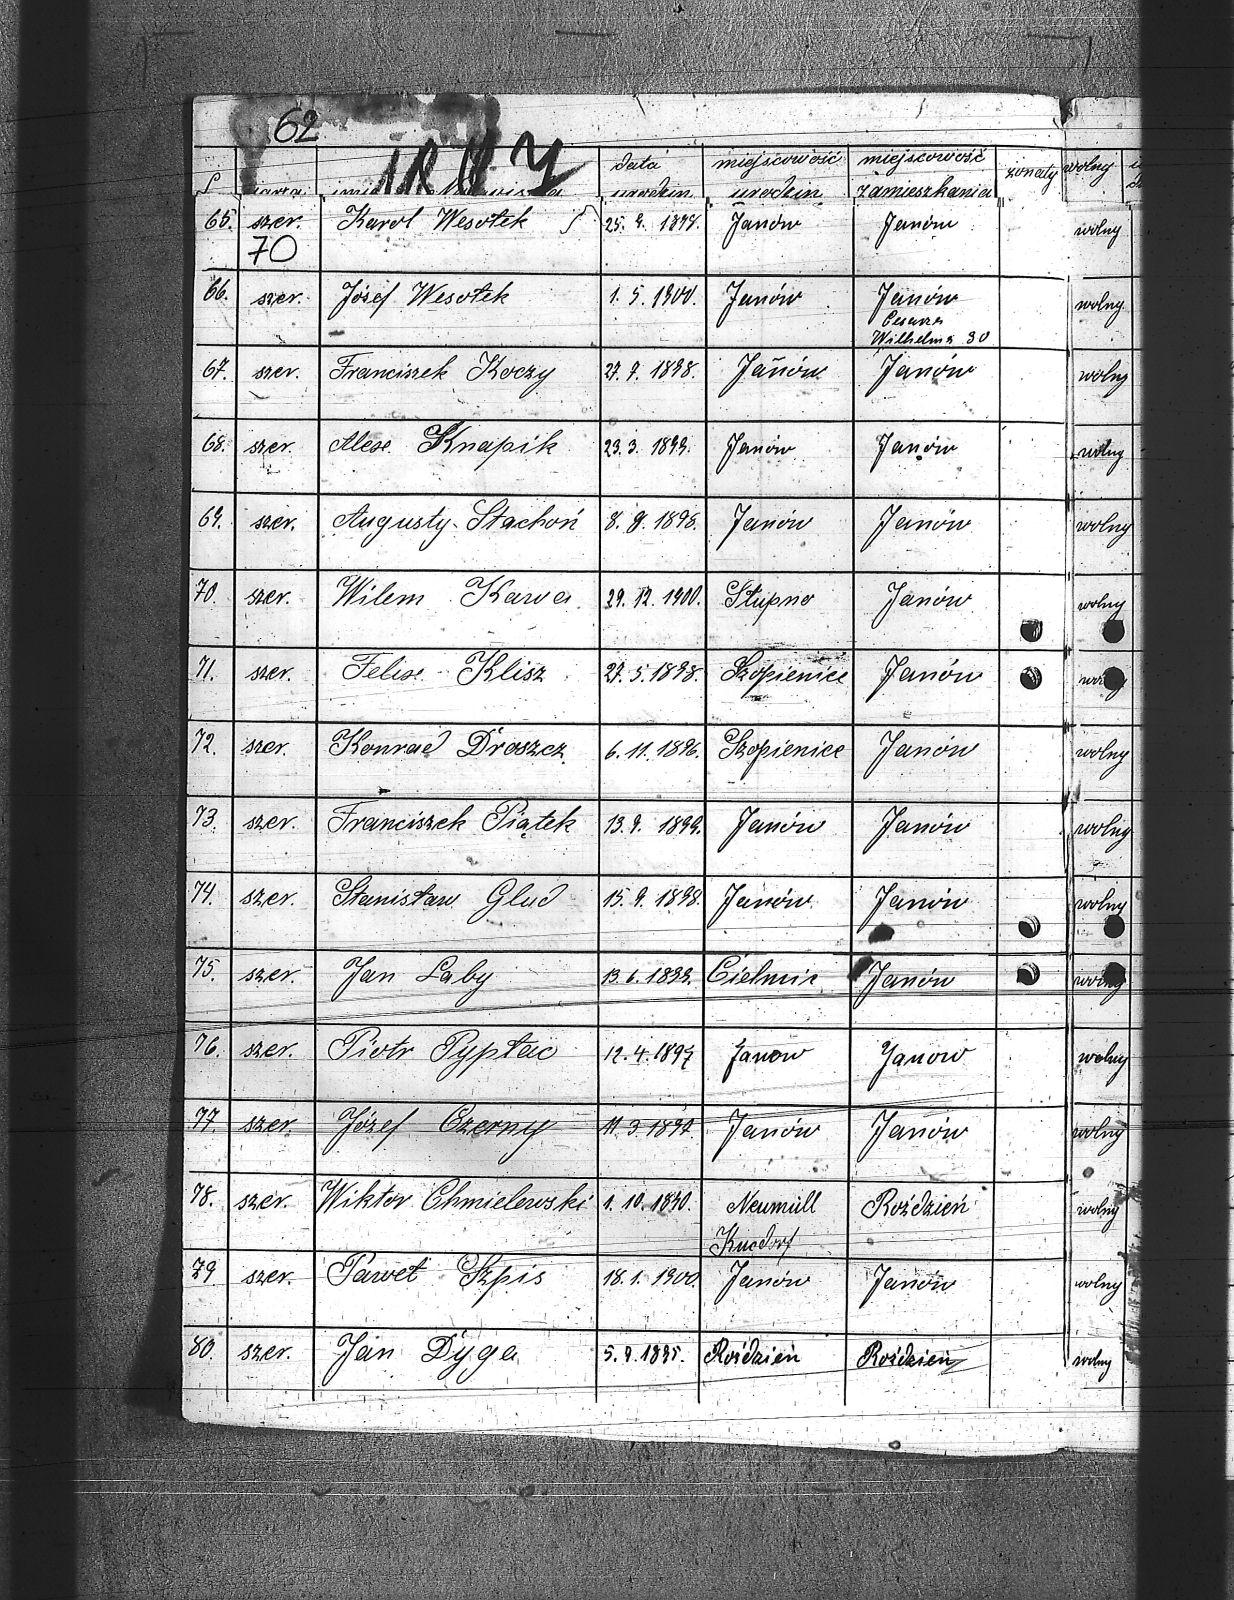 62
data miejscowość miejscowość żonaty wolny
urodzin urodzin zamieszkania
65. szer. Karol Wesołek 1898. Janów Janów wolny
70
66. szer. Józef Wesołek 1. 5. 1900. Janów Janów wolny
Cesarza
Wilhelma 30
67. szer. Franciszek Koczy 1898. Janów Janów wolny
68. szer. Knapik 23. 3. 1899. Janów Janów wolny
69. szer. Augusty Stachoń 1896. Janów Janów wolny
70. szer. Wilem Kawa 29. 12. 1900. Słupno Janów wolny
71. szer. Felix Klisz 27. 5. 1898. Szopienice Janów
72. szer. Konrad Droszcz 6. 11. 1896. Szopienice Janów wolny
73. szer. Franciszek Piątek 13. 9. 1899. Janów Janów wolny
74. szer. Stanisław Glud 15. 9. 1898. Janów Janów wolny
75. szer. Jan Laby 13. 6. 1899. Cielmic Janów wolny
76. szer. Piotr Pypłac 12. 4. 1897 Janow Janow wolny
77. szer. Józef Czerny 11. 3. Janów Janów wolny
78. szer. Wiktor Chmielewski 1. 10. Neumüll Roździeń wolny
79 szer. Paweł Szpis 18. 1. 1900. Janów Janów wolny
80. szer. Jan Dyga 1895. Roździeń Roździeń wolny